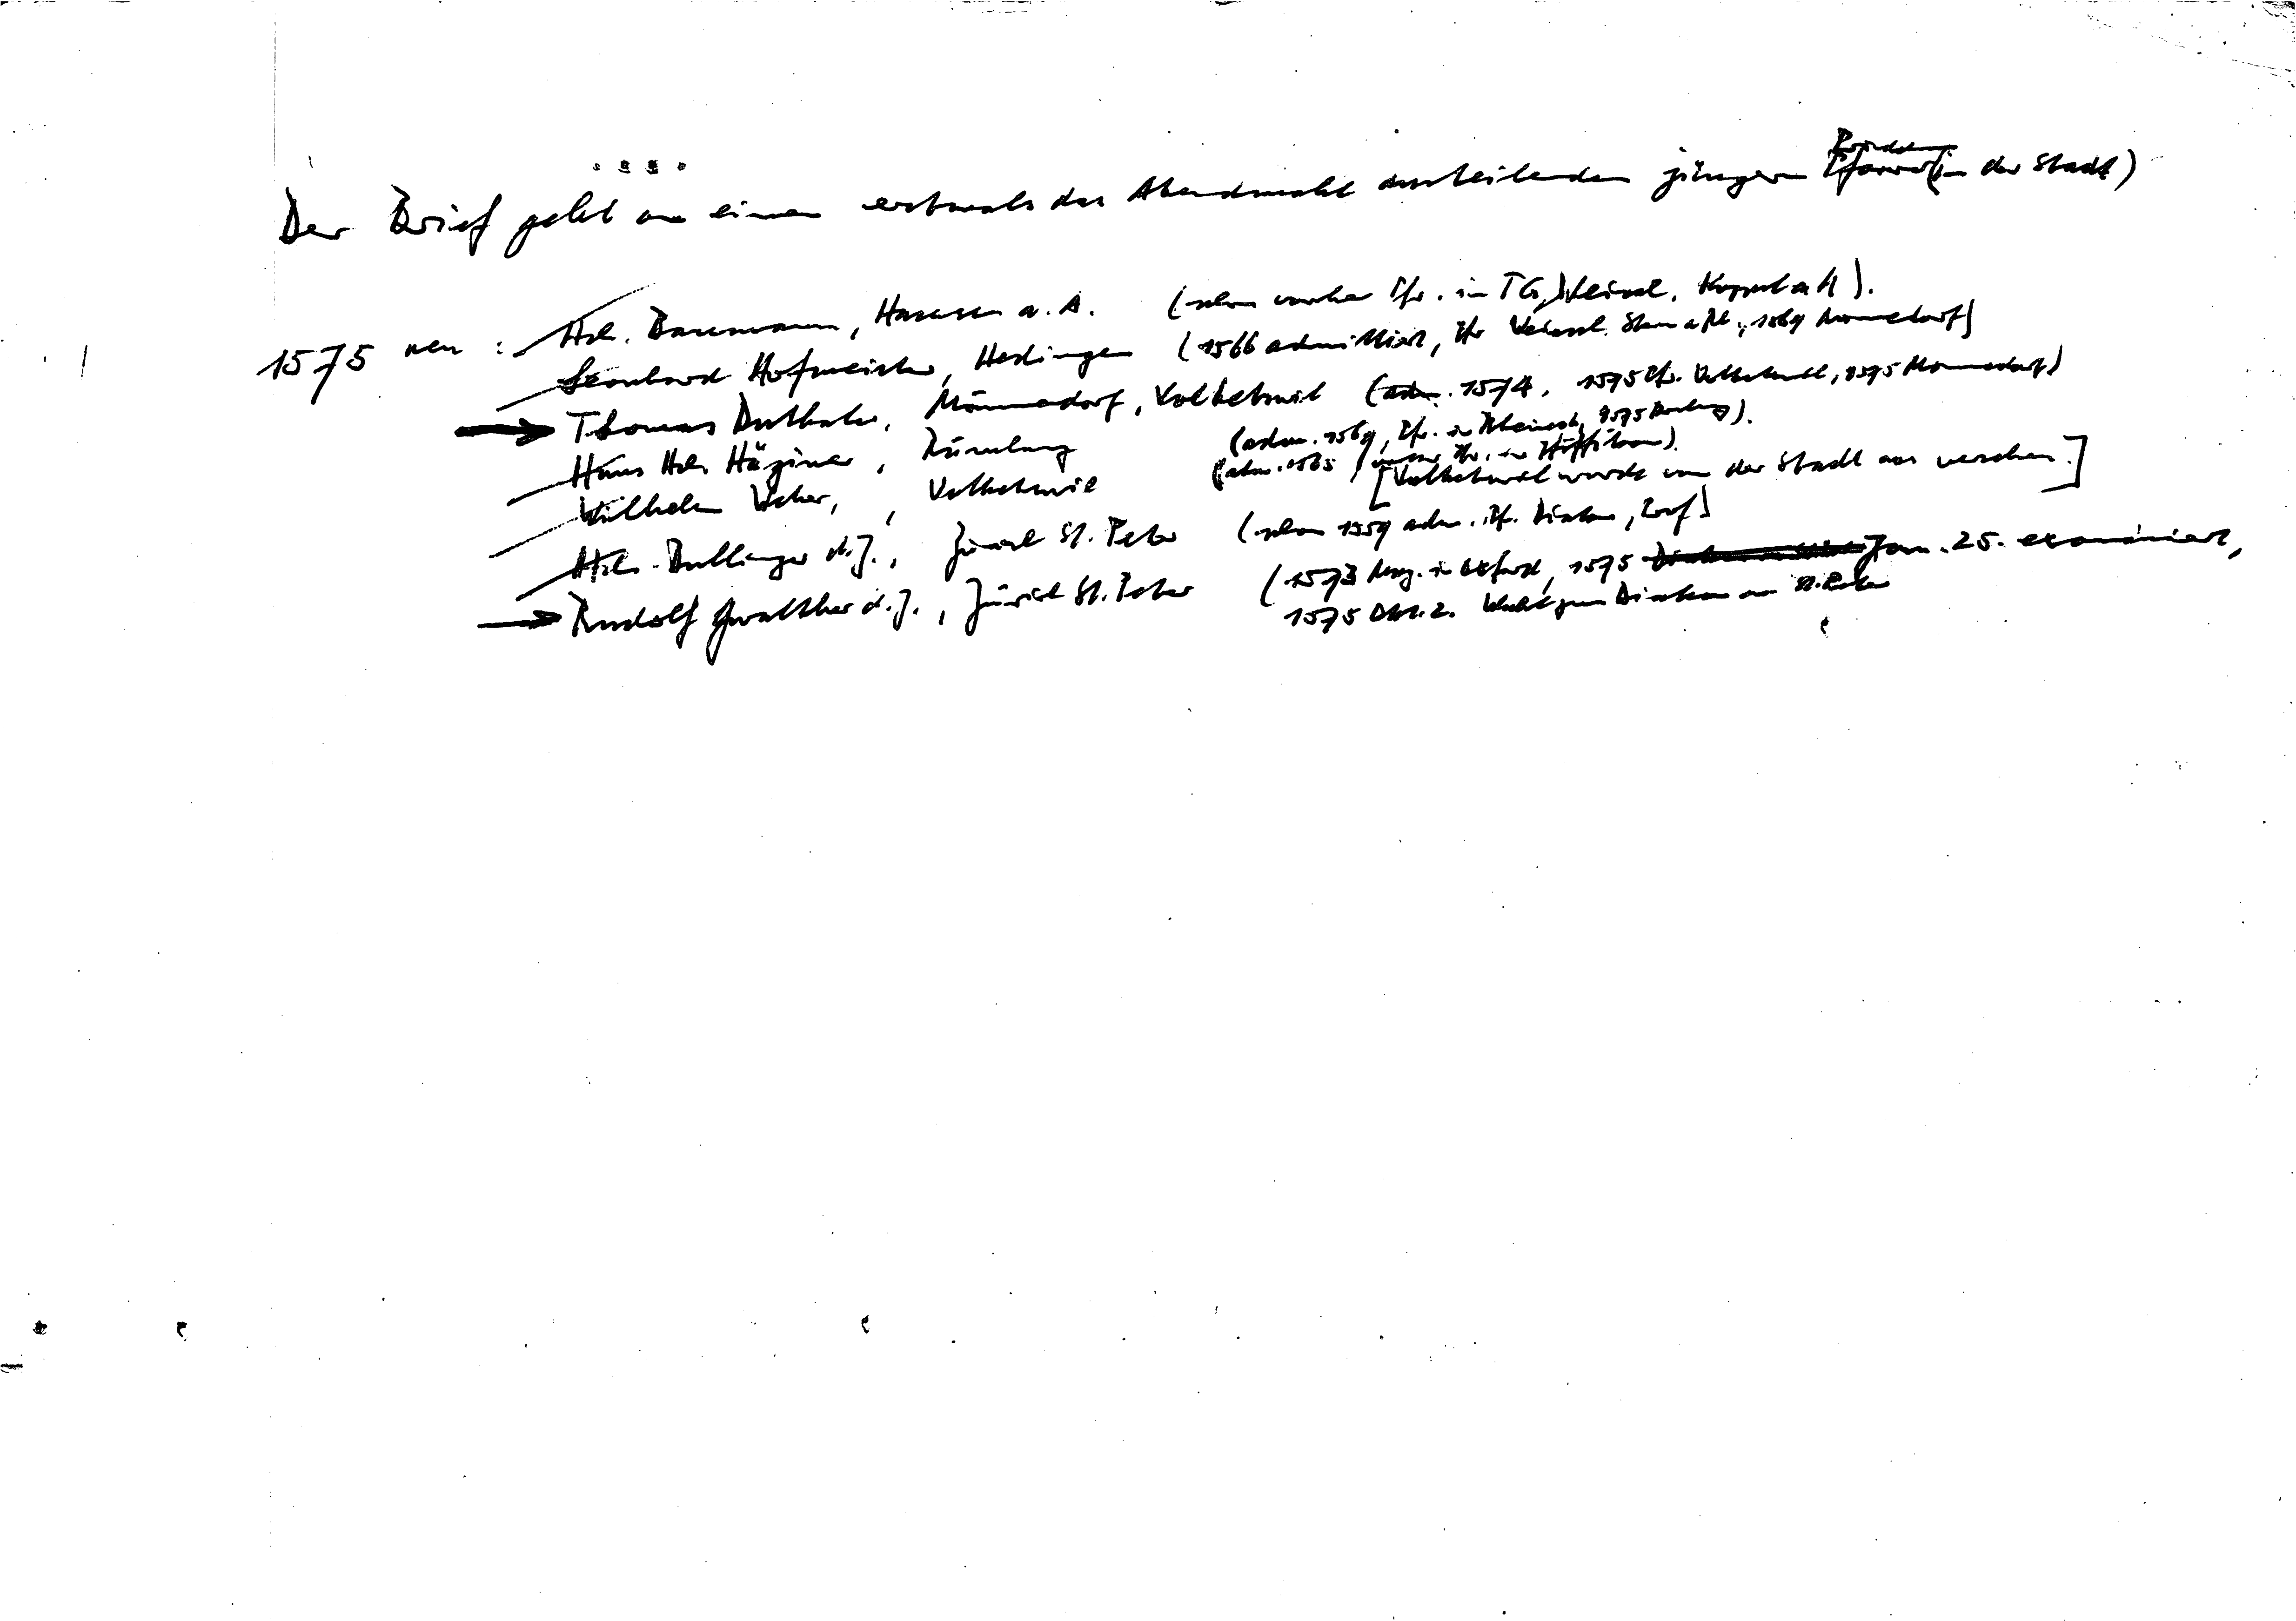 Der Brief geht an einen erstmals das Abendmahl austeilenden jüngern Pfarrer (in der Stadt)
1575 neu : Hch. Baumann, Hausen a. A. (schon vorher Pfr. in TG,
Leonhard Hofmeister, Hedingen (1566 admittiert, Pfr Stein a Rh., 1569 Männedorf)
Thomas Duthaler, Männedorf, Volketswil (adm. 1574, 1575 Pfr. Volketswil, 1575 Männedorf)
Hans Hch. Häginer, Rümlang (adm. 1569, Pfr. in Rheineck, 1575 Rümlang).
Wilhelm Weber, , Volketswil (adm. 1565, Pfr. in
[Volketswil wurde von der Stadt aus versehen.]
Hch. Bullinger d. J., Zürich St. Peter (schon 1559 adm. Pf. Diakon,
Rudolf Gwalther d. J., Zürich St. Peter (1573 Mag. in Oxford, 1575 Jan. 25. examiniert,
1575 Okt. 2. Wahl zum Diakon an St. Peter